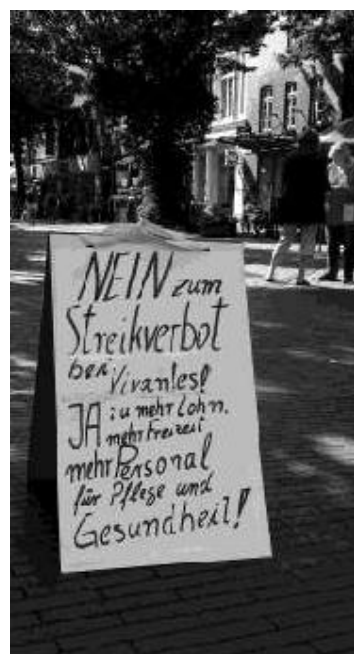 NEIN zum
Streikverbot
bei Vivantes!
JA zu mehr Lohn,
mehr Freizeit
mehr Personal
für Pflege und
Gesundheit!